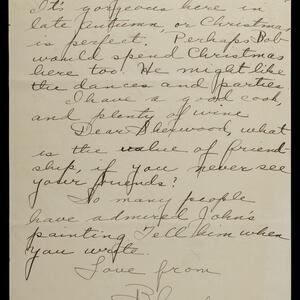 It's gorgeous here in
late autumn, or Christmas
is perfect. Perhaps Bob
would spend Christmas
here too. He might like
the dances and parties
I have a good cook,
and plenty of wine
Dear Sherwood, what
is the value of friend
ship, if you never see
your friends?
So many people
have admired John's
painting Tell him when
you write.
Love from